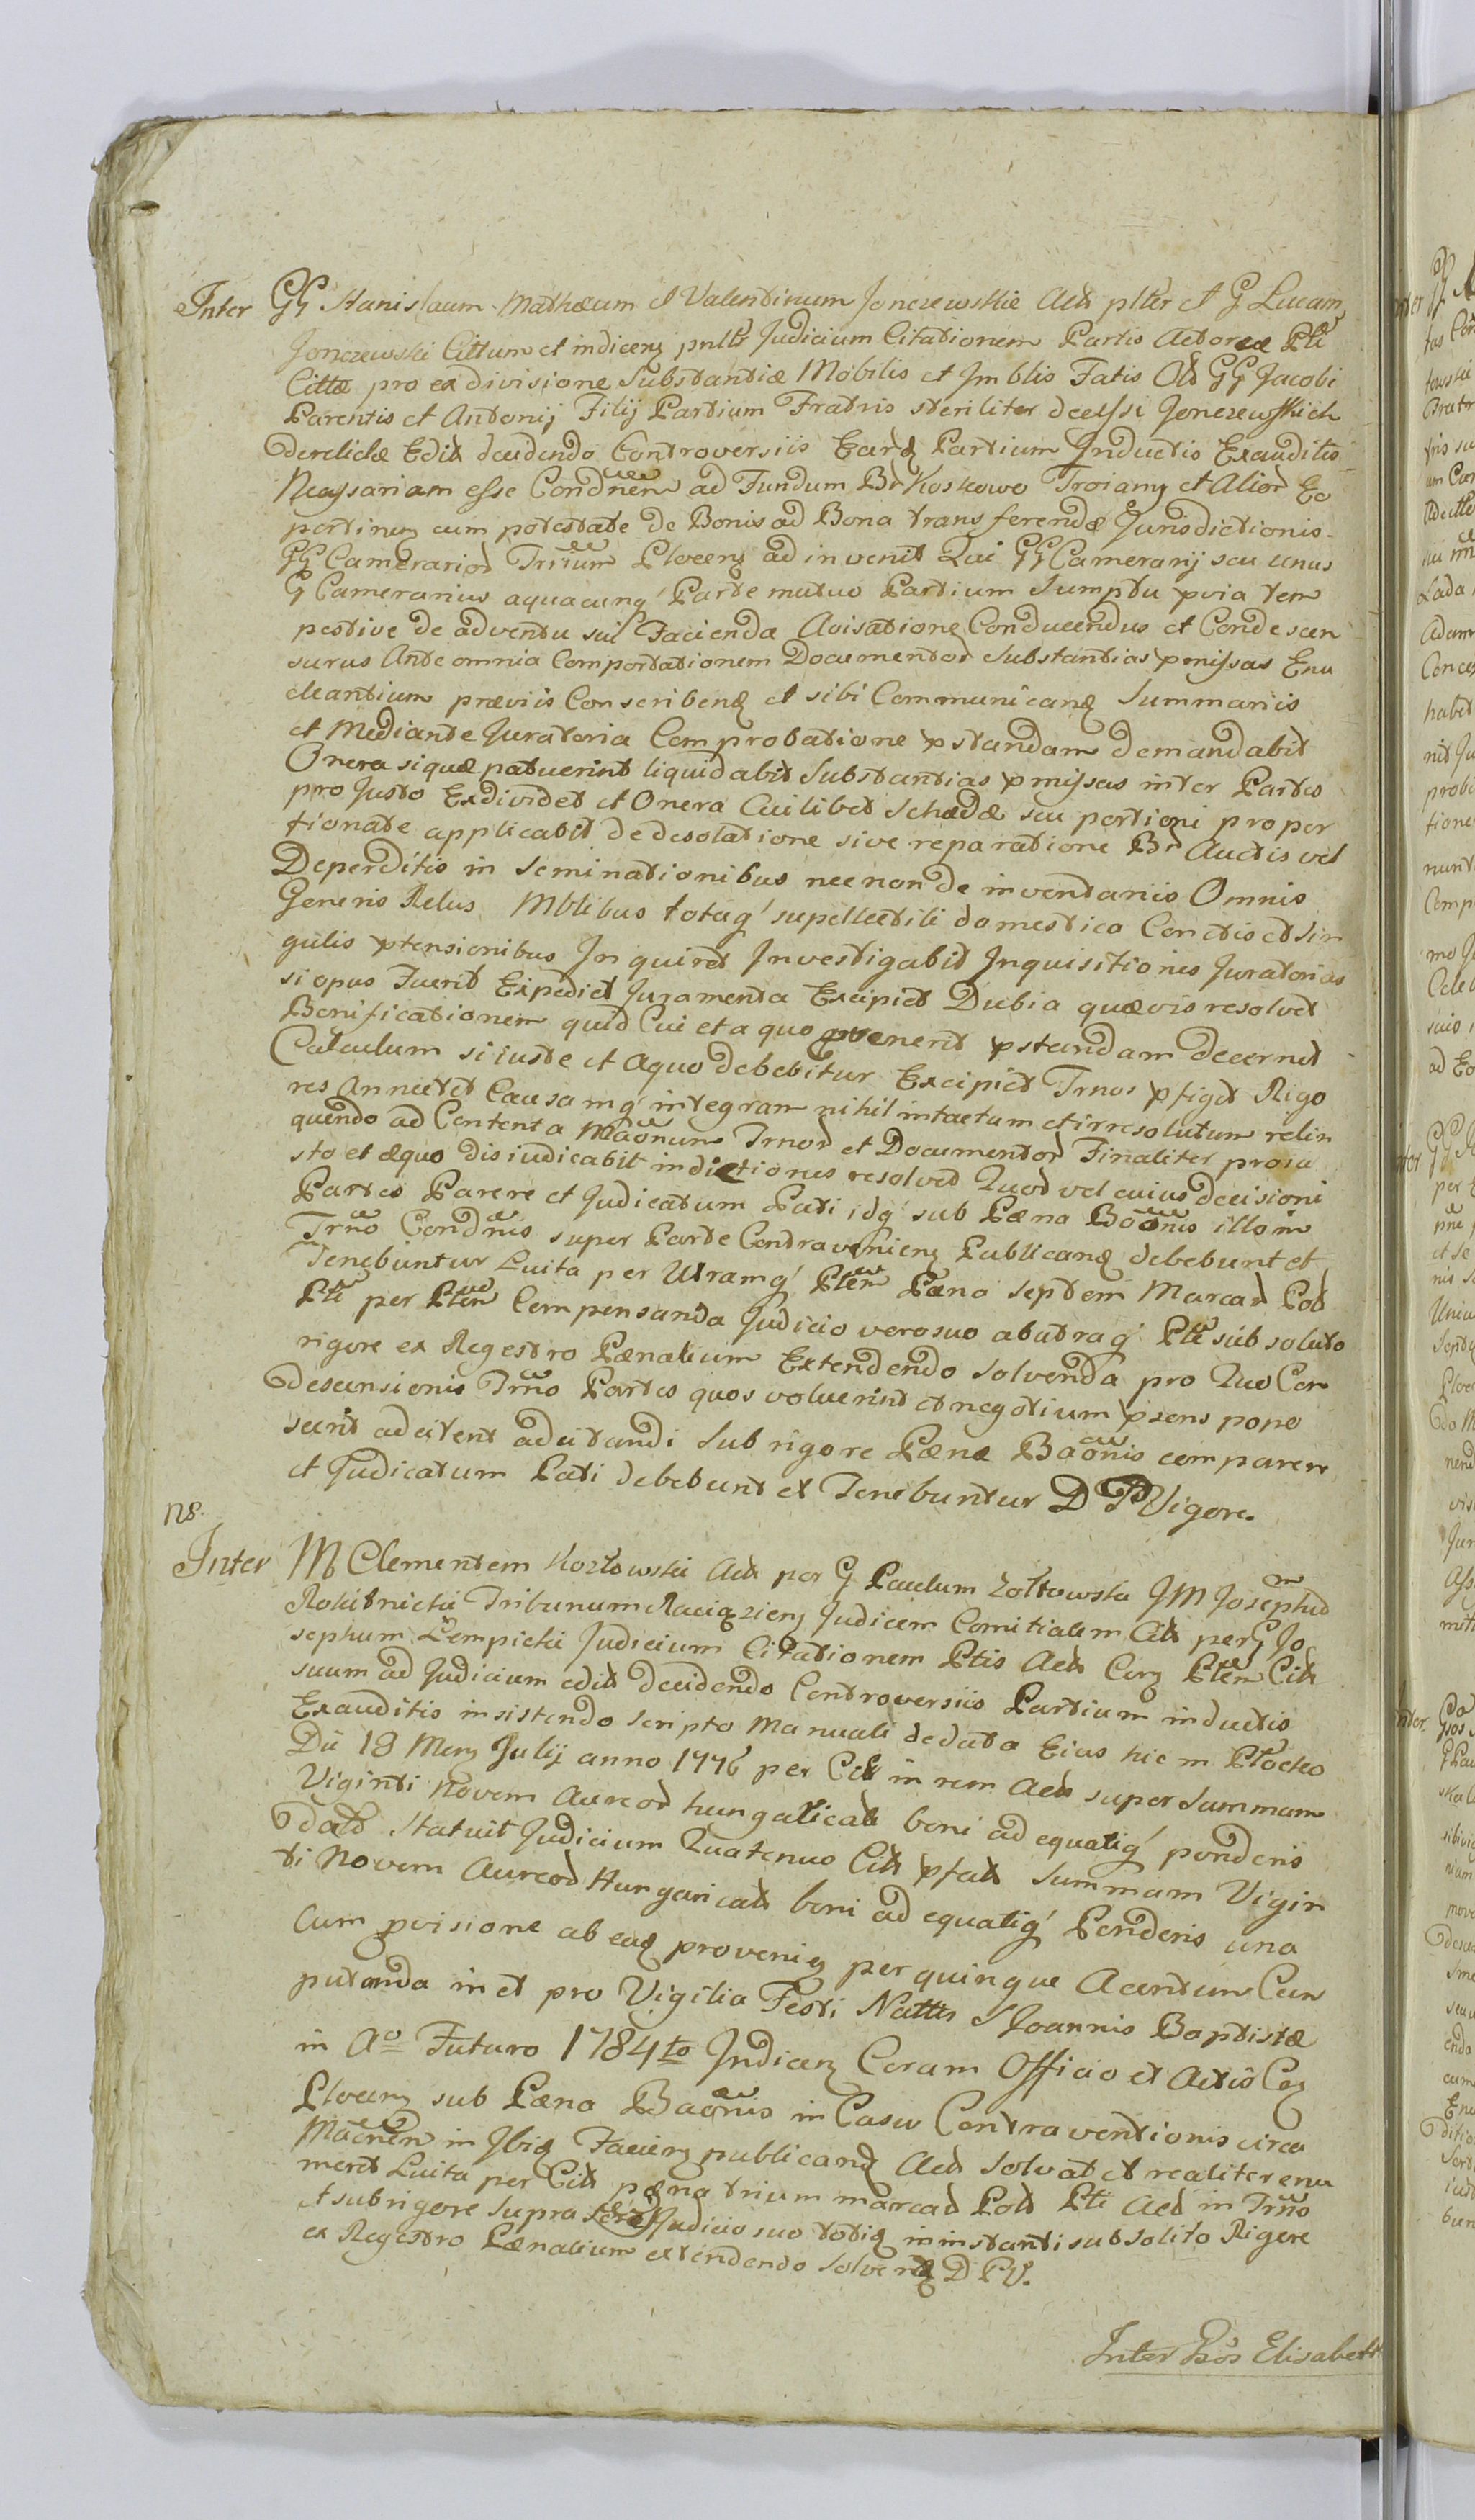 Inter GG Stanislaum Mathæum et Valentinum Jonczewskie Act plter et G Lucam
Jonczewski Cittum et indicenq pntte Judicium Citationem Partis Actoreæ Pti
Cittæ pro exdivisione Substantiæ Mobilis et Jmblis Fatis Old GG Jacobi
Parentis et Antonij Filij Partium Fratris steriliter decessi Jonczewskich
derelictæ Edit decidendo Controversiis Earq Partium Jnductis Exauditis
Necessariam esse Condnem ad Fundum Br Koskowo Troiany et Alior Eo
pertinenq cum potestate de Bonis ad Bona transferendæ Jurisdictionis
GG Camerarior Trrium Plocenq ad invenit Qui GG Camerarij seu unus
G Camerarius aquacunq Parte mutuo Partium Sumptu pvia tem
pestive de adventu sui Facienda Avisatione Conducendus et Condescen
surus Ante omnia Comportationem Documentor Substantias pmissas Enu
cleantium præviis Conscribenq et sibi Communicanq Summariis
et Mediante Juratoria Comprobatione pstandam demandabit
Onera siquæ patuerint liquidabit Substantias pmissas inter Partes
pro Justo Exdividet et Onera Cuilibet Schedæ seu portioni propor
tionate applicabit de desolatione sive reparatione Br Auctis vel
Deperditis in seminationibus necnon de inventariis Omnis
Generis Rebus Mblibus totaq supellectili domestica Conctis et Sin
gulis ptensionibus Jnquiret Jnvestigabit Jnquisitiones Juratorias
si opus Fuerit Expediet Juramenta Excipiet Dubia quævis resolvet
Bonificationem quid Cui et a quo pvenerit pstandam decernet
Calculum si iuste et Aquo debebitur Excipiet Trnos pfiget Rigo
res Annectet Causamq integram nihil intactum et irresolutum relin
quendo ad Contenta Maonum Trnor et Documentor Finaliter pro iu
sto et æquo disiudicabit indictiones resolvet Quod vel cuius decisioni
Partes Parere et Judicatum Pati idq sub Pæna Baonis illo in
Trno Condnis super Parte Contravenienq Publicanq debebunt et
Tenebuntur Luita per Utramq Ptem Pæna Septem Marcar Pol
Pti per Ptem Compensanda Judicio vero suo ab utraq Pte sub soluto
rigore ex Regestro Pænalium Extendendo solvenda pro Quo Con
descensionis Trno Partes quos voluerint et negotium pzens popo
scerit adcitent adcitandi Sub rigore Pænæ Baonis comparere
et Judicatum Pati debebunt et Tenebuntur D P Vigore
ns.
Inter M Clementem Kozłowski Act per G Paulum Zołtowski JM Josephu
Rokitnicki Tribunum Raciązienq Judicem Comitialem Cit per G Jo
sephum Łempicki Judicium Citationem Ptis Act Corq Ptem Cit
suum ad Judicium edit decidendo Controversiis Partium inductis
Exauditis insistendo Scripto Manuali de data Eius hic in Płocko
Dii 18 Menq Julij anno 1776 per Cit in rem Act super Summam
Viginti Novem Aureor hungaricalt boni ad equatiq ponderis
dato Statuit Judicium Quatenus Cit pfatt Summam Vigin
ti Novem Aureor Hungaricalt boni ad equatiq Ponderis una
Cum pvisione ab eaq provenienq per quinque A centum Com
putanda in et pro Vigilia Festi Nattis S Joannis Baptistæ
in Ao Futuro 1784to Jndicenq Coram Officio et Actis Cq
Plocenq sub Pæna Baonis in Casu Contraventionis circa
Maonem in Jbiq Facienq publicanq Act solvat et realiter enu
meret Luita per Cit pæna trium marcar Pol Pti Act in Trno
et sub rigore supra Judicio suo totiq in instanti sub solito Rigore
ex Regestro Pænalium extendendo Solvenq D P V.
Inter Elisabeth